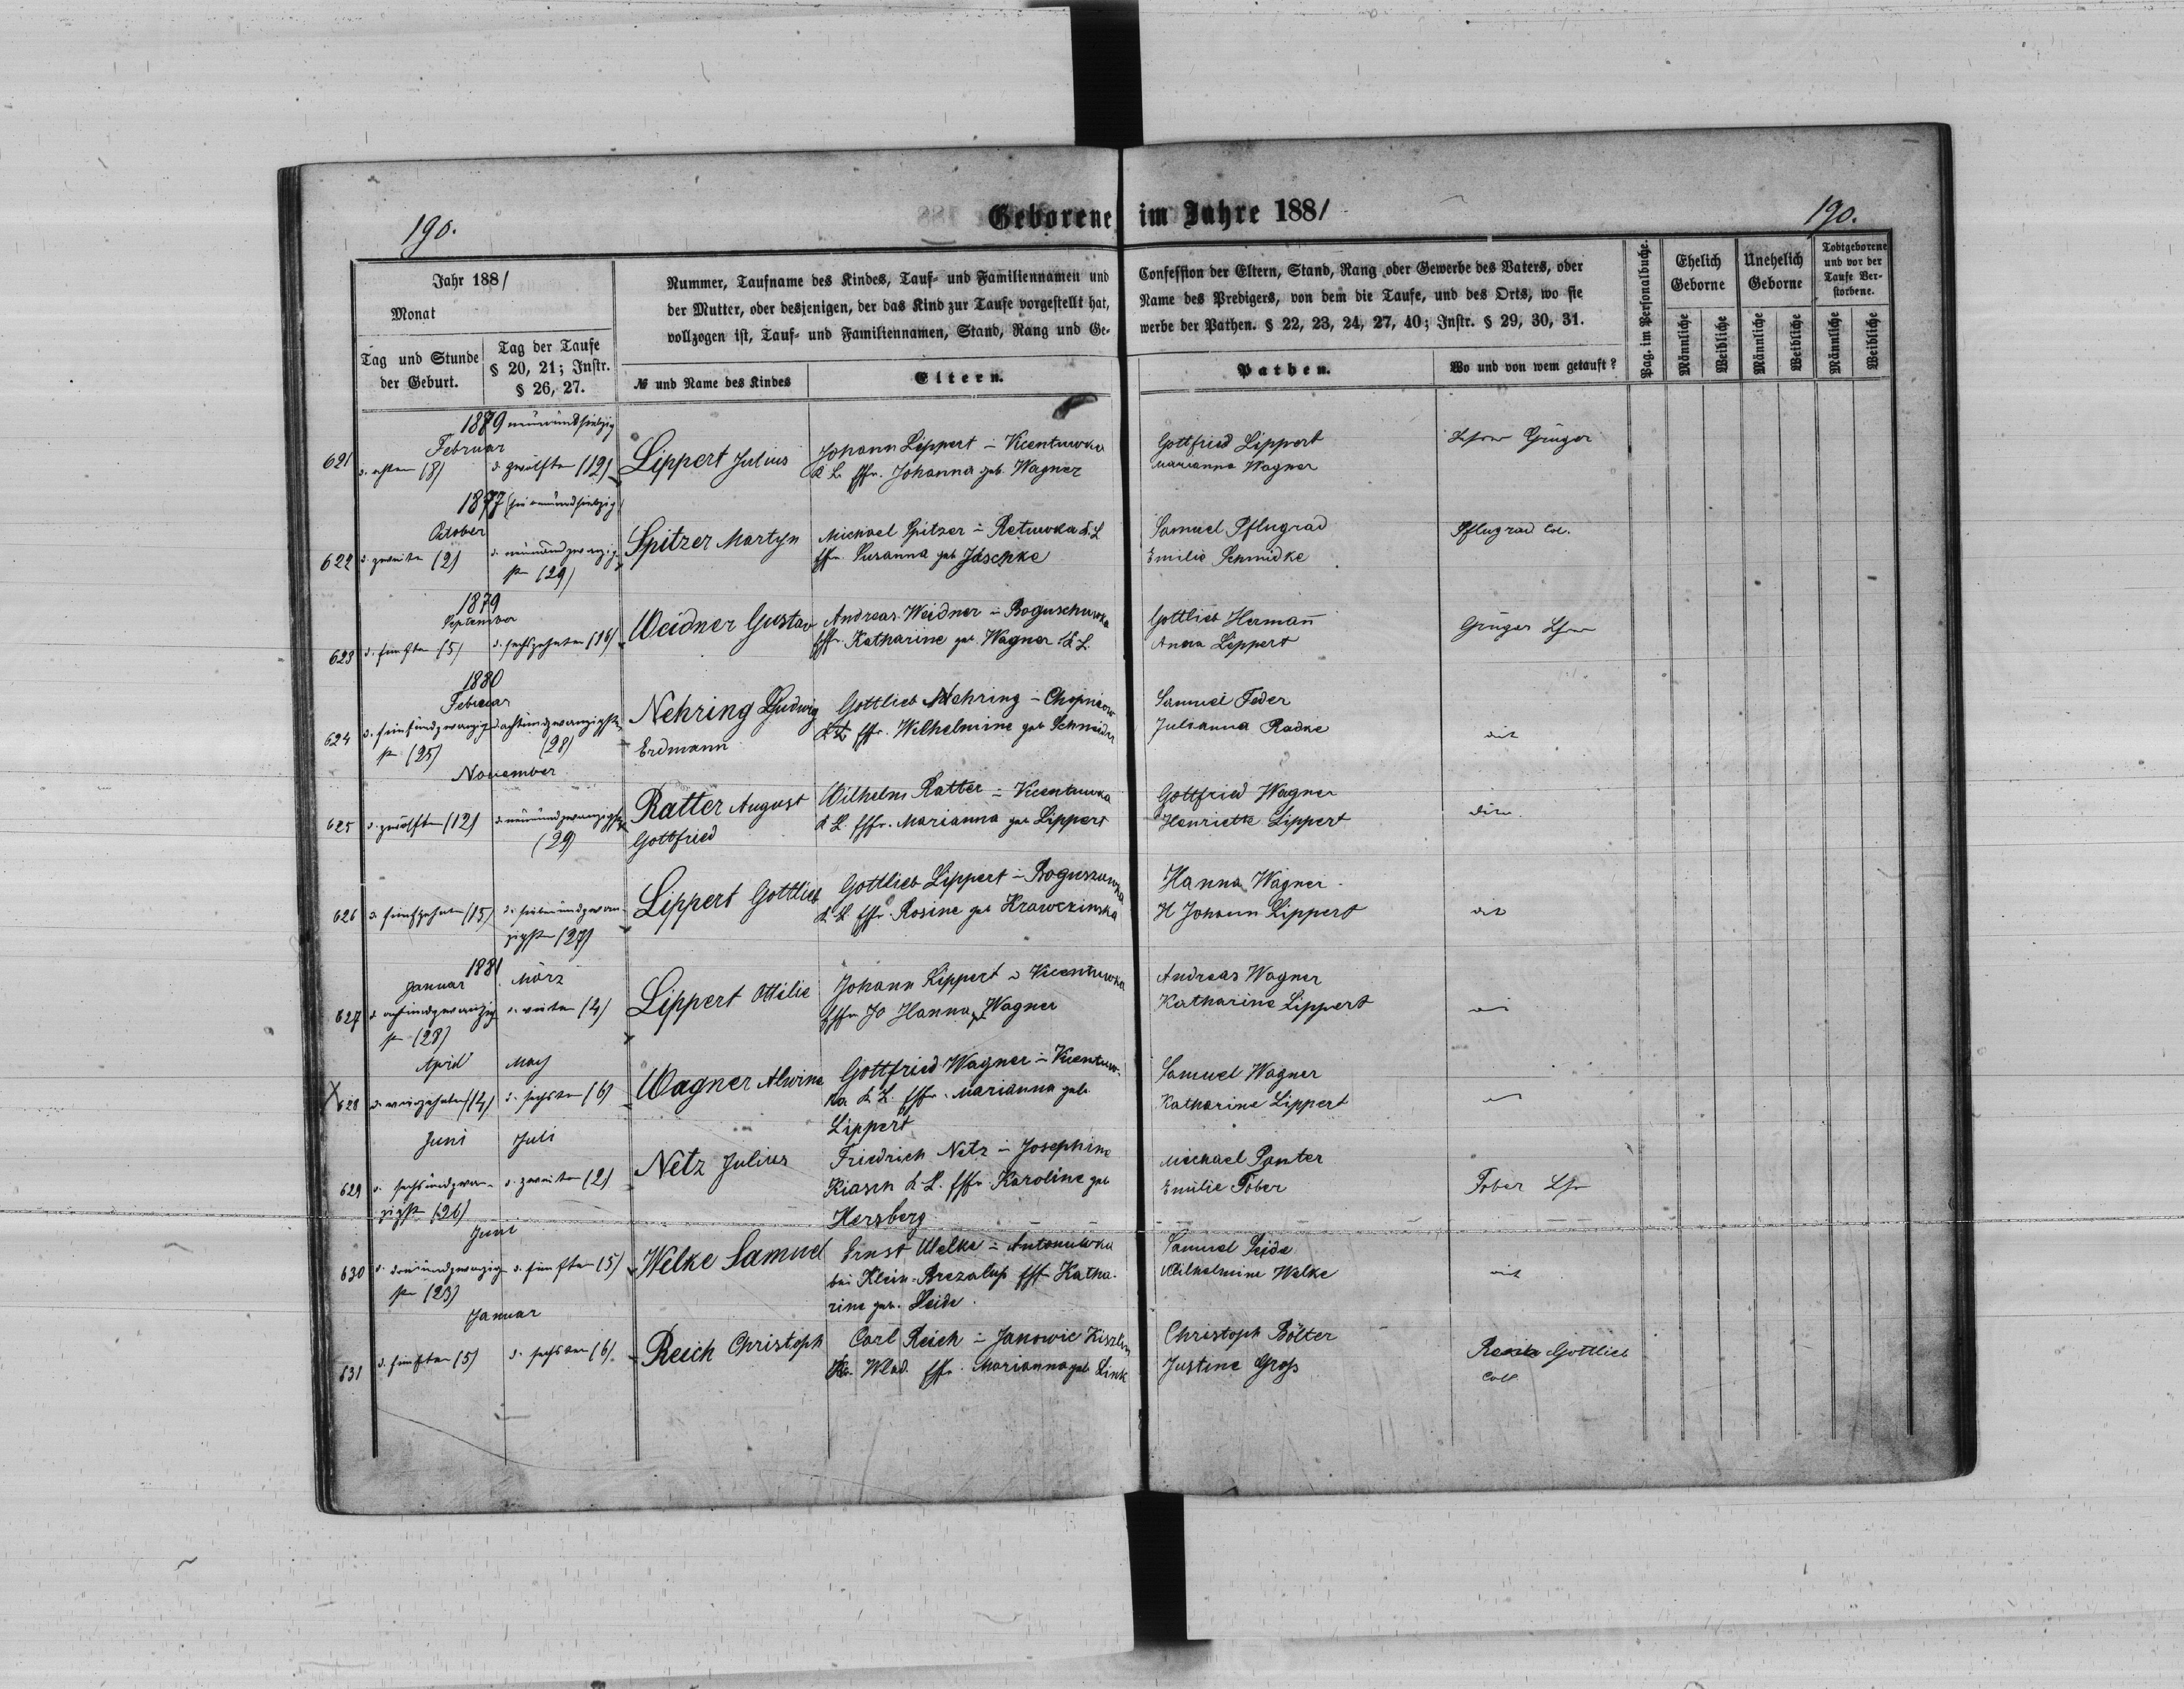 190.
Geborene im Jahre 1881
190.
Jahr 1881
Monat
Tag und Stunde der Geburt.
Tag der Taufe § 20, 21; Instr. § 26, 27.
Nummer, Taufname des Kindes, Tauf- und Familiennamen und
der Mutter, oder desjenigen, der das Kind zur Taufe vorgestellt hat,
vollzogen ist, Tauf- und Familiennamen, Stand, Rang und Ge-
№ und Name des Kindes
Eltern.
Confession der Eltern, Stand, Rang oder Gewerbe des Vaters, oder
Name des Predigers, von dem die Taufe, und des Orts, wo sie
werbe der Pathen. § 22, 23, 24, 27, 40; Instr. § 29, 30, 31.
Pathen.
Wo und von wem getauft?
Pag. im Personalbuche.
Ehelich Geborne
Unehelich Geborne
Todtgeborene und vor der Taufe Verstorbene.
Männliche
Weibliche
Männliche
Weibliche
Männliche
Weibliche
1879 neunundsiebzig
Februar
621 d. achten (8) d. zwölften (12) Lippert Julius
Johann Lippert - Vicentuwka
K. L. Ehfr. Johanna geb. Wagner
Gottfried Lippert
Marianna Wagner
Lehrer Grüger
1877 siebenundsiebzig
October
622 d. zweiten (2) d. neunundzwanzig-
sten (29)
Spitzer Martyn
Michael Spitzer - Retuwka K. L
Ehfr. Susanna geb Jaschke
Samuel Pflugrad
Emilie Schmidke
Pflugrad Col.
1879
September
623 d. fünften (5) d. sechszehnten (16) Weidner Gustav
Andreas Weidner - Boguschuwka
Ehfr. Katharine geb. Wagner K L.
Gottlieb Hermann
Anna Lippert
Grüger Lehrer
1880
Februar
624 d. fünfundzwanzig-
sten (25)
d. achtundzwanzigsten
(28)
Nehring Ludwig
Erdmann
Gottlieb Nehring - Chopnicow
K L Ehfr. Wilhelmine geb Schneider
Samuel Feder
Julianna Radke
November
625 d. zwölften (12) d. neunundzwanzigsten
(29)
Ratter August
Gottfried
Wilhelm Ratter - Vicentuwka
K L. Ehfr. Marianna geb Lippert
Gottfried Wagner
Henriette Lippert
626 d. fünfzehnten (15) d. siebenundzwan-
zigsten (27)
Lippert Gottlieb
Gottlieb Lippert - Boguszuwka
K. L. Ehfr. Rosine geb Krawczinska
Hanna Wagner
H Johann Lippert
1881
Januar März
627 d. achtundzwanzig-
sten (28)
d. vierten (4)
Lippert Ottilie
Johann Lippert - Vicentuwka
Ehfr Jo Hanna geb Wagner
Andreas Wagner
Katharine Lippert
April May
628 d. vierzehnten (14) d. sechsten (6) Wagner Alwine
Gottfried Wagner - Vicentuw-
ka K L. Ehfr. Marianna geb.
Lippert
Samuel Wagner
Katharine Lippert
Juni Juli
629 d. sechsundzwan-
zigsten (26)
d. zweiten (2)
Netz Julius
Friedrich Netz - Josephine
Kiasen K L. Ehfr Karoline geb
Herzberg
Michael Panter
Emilie Tober
Tober Lehr
Juni
630 d. dreiundzwanzig-
sten (23)
d. fünften (5)
Welke Samuel
Ernst Welke - Antonuwka
bei Klein-Brezalup Ehfr Katha-
rine geb. Seide.
Samuel Seide
Wilhelmine Welke
Januar
631 d. fünften (5) d. sechsten (6). Reich Christoph
Carl Reich - Janowic
Kr. Wlad. Ehfr. Marianna geb Link
Christoph Bölter
Justine Gross
Gottlieb
Col